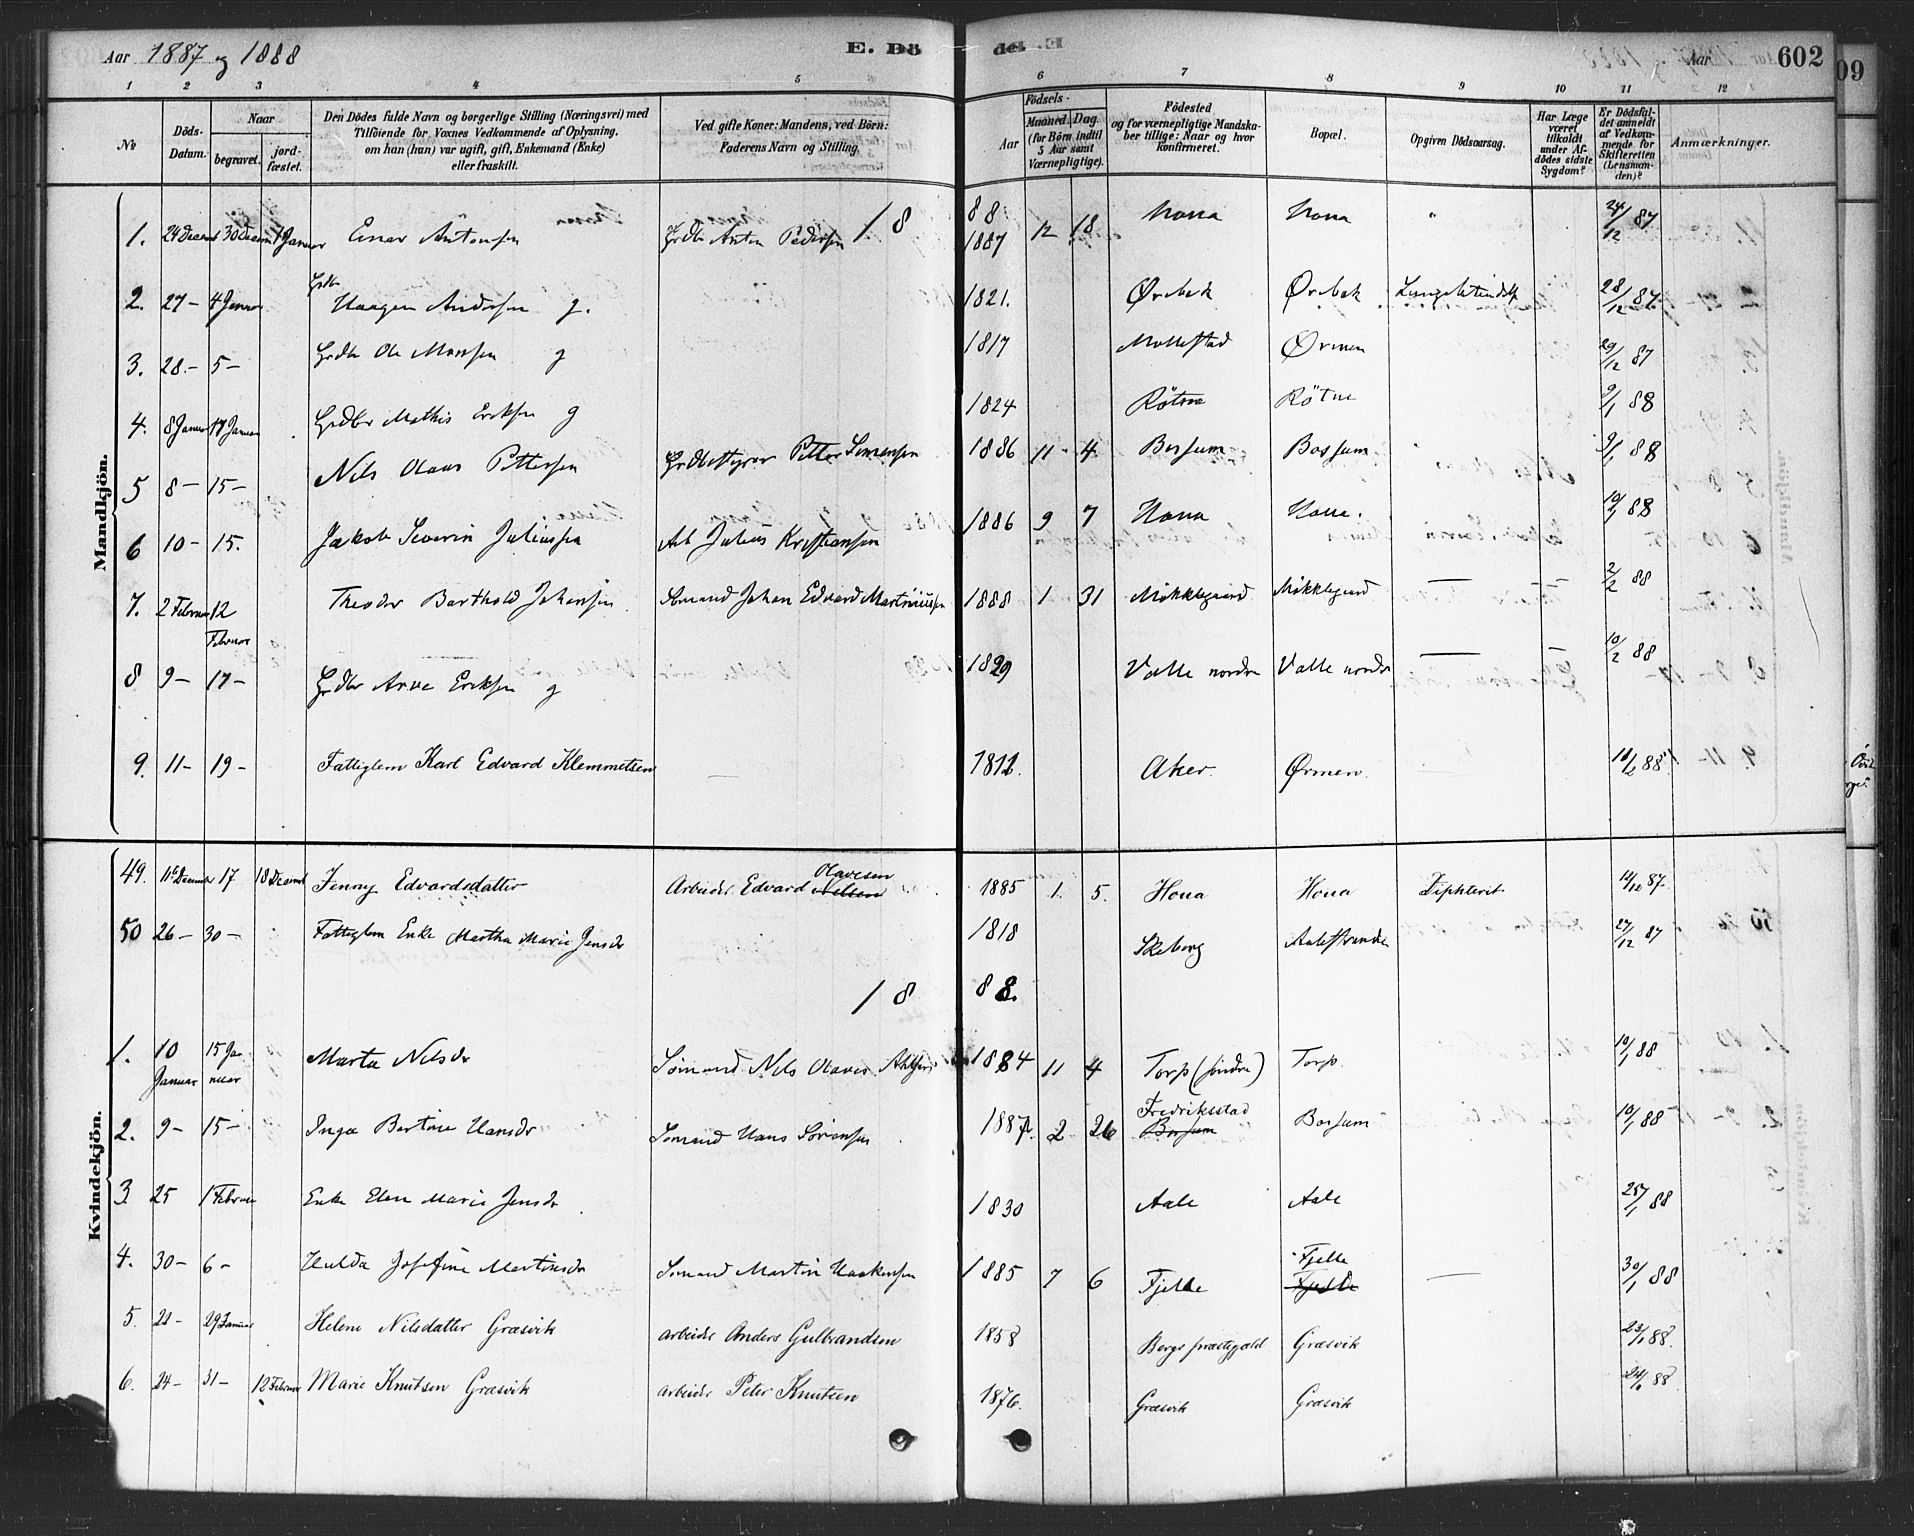 Aar 1887 og 1888 E. Dö de. Aar 602
1 2 3 4 5 6 7 8 9 10 11 12
No
Döds-Datum.
Naar
begravet.
jord-fæstet.
Den Dödes fulde Navn og borgerlige Stilling (Næringsvei) med
Tilföiende for Voxnes Vedkommende af Oplysning,
om han (hun) var ugift, gift, Enkemand (Enke)
eller fraskilt.
Ved gifte Koner: Mandens, ved Börn:
Faderens Navn og Stilling.
Födsels-
Aar
Maaned. Dag
(for Börn indtil
5 Aar samt
Værnepligtige).
Födested
og for værnepligtige Mandska-
ber tillige: Naar og hvor
konfirmeret.
Bopæl.
Opgiven Dödsaarsag.
Har Læge
været
tilkaldt
under Af-
dödes sidste
Sygdom?
Er Dödsfal-
det anmeldt
af Vedkom-
mende for
Skifteretten
(Lensman-
den)?
Anmærkninger.
Mandkjön.
18 88
1. 24 Decem 30 Decem 1 Januar Einar Antonsen Grdbr Anton Pedersen 1887 12 18 Hona Hona " 24/12 87
2. 27 – 4 Januar Grdbr Haagen Andersen g. 1821. Ørebæk Ørebæk 28/12 87
3. 28. – 5 – Grdbr Ole Monsen g 1817 Mollestad Ørmen 29/12 87
4. 8 Januar 17 Januar Grdbr Mathis Eriksen g 1824 Røtne Røtne 9/1 88
5 8 – 15 – Nils Olaus Pettersen Grdbestyrer Petter Simensen 1886 11 – 4 Bossum Bossum 9/1 88
6 10 – 15. Jakob Severin Juliussen Arb Julius Kristiansen 1886 9 7 Hona Hona. 10/1 88
7. 2 Februar 12 Februar Theodor Barthold Johansen Sømand Johan Edvard Martiniussen 1888 1 31 Mökklegaard Mökklegaard — – 2/2 88
8 9 – 17 – Grdbr Arne Eriksen g 1829 Valle nordre Valle nordre — – 10/2 88
9. 11 – 19 – Fattiglem Karl Edvard Klemmetsen 1812. Aker. Ørmen. 11/2 88
Kvindekjön.
49. 11te December 17 18 Decemb Jenny Edvardsdatter Arbeider Edvard Nilsen Olavesen 1885 1. 5. Hona Hona Diphterit 14/12 87
50 26 – 30 – Fattiglem Enke Martha Marie Jensdr 1818 Skeberg Aalestranden 27/12 87
18 88.
1. 10 Januar 15 Januar Marta Nilsdr Sømand Nils Olaves 1884 11 4 Torp (söndre) Torp. 10/1 88
2. 9 – 15 – Inga Bertine Hansdr Sömand Hans Sörensen 1887. 2 26 Fredriksstad Bossum Bossum 10/1 88
3 25 1 Februar Enke Elen Marie Jensdr 1830 Aale Aale 25/1 88
4. 30 – 6 – Hulda Josefine Martinsdr Sömand Martin Haakensen 1885 7 6 Fjelle Fjelle Fjelle — 30/1 88
5. 22 – 29 Januar Helene Nilsdatter Græsvik arbeider Anders Gulbrandsen 1858 Bergs præstegjæld Græsvik 23/1 88.
6. 24 – 31 – 12 Februar Marie Knutsen Græsvik arbeider Peter Knutsen 1876. Græsvik Græsvik 24/1 88